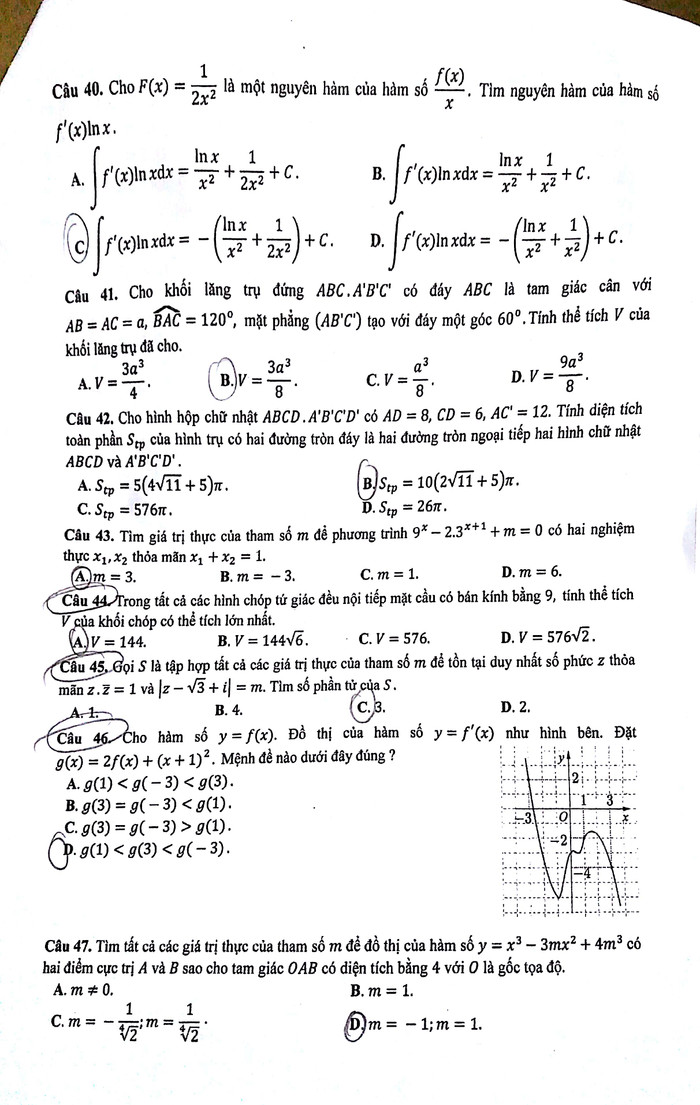 Câu 40. Cho F(x) = 1/(2x²) là một nguyên hàm của hàm số f(x)/x. Tìm nguyên hàm của hàm số
f'(x)lnx.
A. ∫f'(x)lnxdx = lnx/x² + 1/(2x²) + C. B. ∫f'(x)lnxdx = lnx/x² + 1/x² + C.
C. ∫f'(x)lnxdx = −(lnx/x² + 1/(2x²)) + C. D. ∫f'(x)lnxdx = −(lnx/x² + 1/x²) + C.
Câu 41. Cho khối lăng trụ đứng ABC.A'B'C' có đáy ABC là tam giác cân với
AB = AC = a, BAC = 120°, mặt phẳng (AB'C') tạo với đáy một góc 60°.Tính thể tích V của
khối lăng trụ đã cho.
A. V = 3a³/4. B. V = 3a³/8. C. V = a³/8. D. V = 9a³/8.
Câu 42. Cho hình hộp chữ nhật ABCD.A'B'C'D' có AD = 8, CD = 6, AC' = 12. Tính diện tích
toàn phần Stp của hình trụ có hai đường tròn đáy là hai đường tròn ngoại tiếp hai hình chữ nhật
ABCD và A'B'C'D'.
A. Stp = 5(4√11 + 5)π. B. Stp = 10(2√11 + 5)π.
C. Stp = 576π. D. Stp = 26π.
Câu 43. Tìm giá trị thực của tham số m để phương trình 9ˣ − 2.3ˣ⁺¹ + m = 0 có hai nghiệm
thực x₁, x₂ thỏa mãn x₁ + x₂ = 1.
A. m = 3. B. m = − 3. C. m = 1. D. m = 6.
Câu 44. Trong tất cả các hình chóp tứ giác đều nội tiếp mặt cầu có bán kính bằng 9, tính thể tích
V của khối chóp có thể tích lớn nhất.
A. V = 144. B. V = 144√6. C. V = 576. D. V = 576√2.
Câu 45. Gọi S là tập hợp tất cả các giá trị thực của tham số m để tồn tại duy nhất số phức z thỏa
mãn z.z̅ = 1 và |z − √3 + i| = m. Tìm số phần tử của S.
A. 1. B. 4. C. 3. D. 2.
Câu 46. Cho hàm số y = f(x). Đồ thị của hàm số y = f'(x) như hình bên. Đặt
g(x) = 2f(x) + (x + 1)². Mệnh đề nào dưới đây đúng ?
A. g(1) < g(− 3) < g(3).
B. g(3) = g(− 3) < g(1).
C. g(3) = g(− 3) > g(1).
D. g(1) < g(3) < g(− 3).
y
2
1 3
−3 O x
−2
−4
Câu 47. Tìm tất cả các giá trị thực của tham số m để đồ thị của hàm số y = x³ − 3mx² + 4m³ có
hai điểm cực trị A và B sao cho tam giác OAB có diện tích bằng 4 với O là gốc tọa độ.
A. m ≠ 0. B. m = 1.
C. m = − 1/⁴√2; m = 1/⁴√2. D. m = − 1; m = 1.